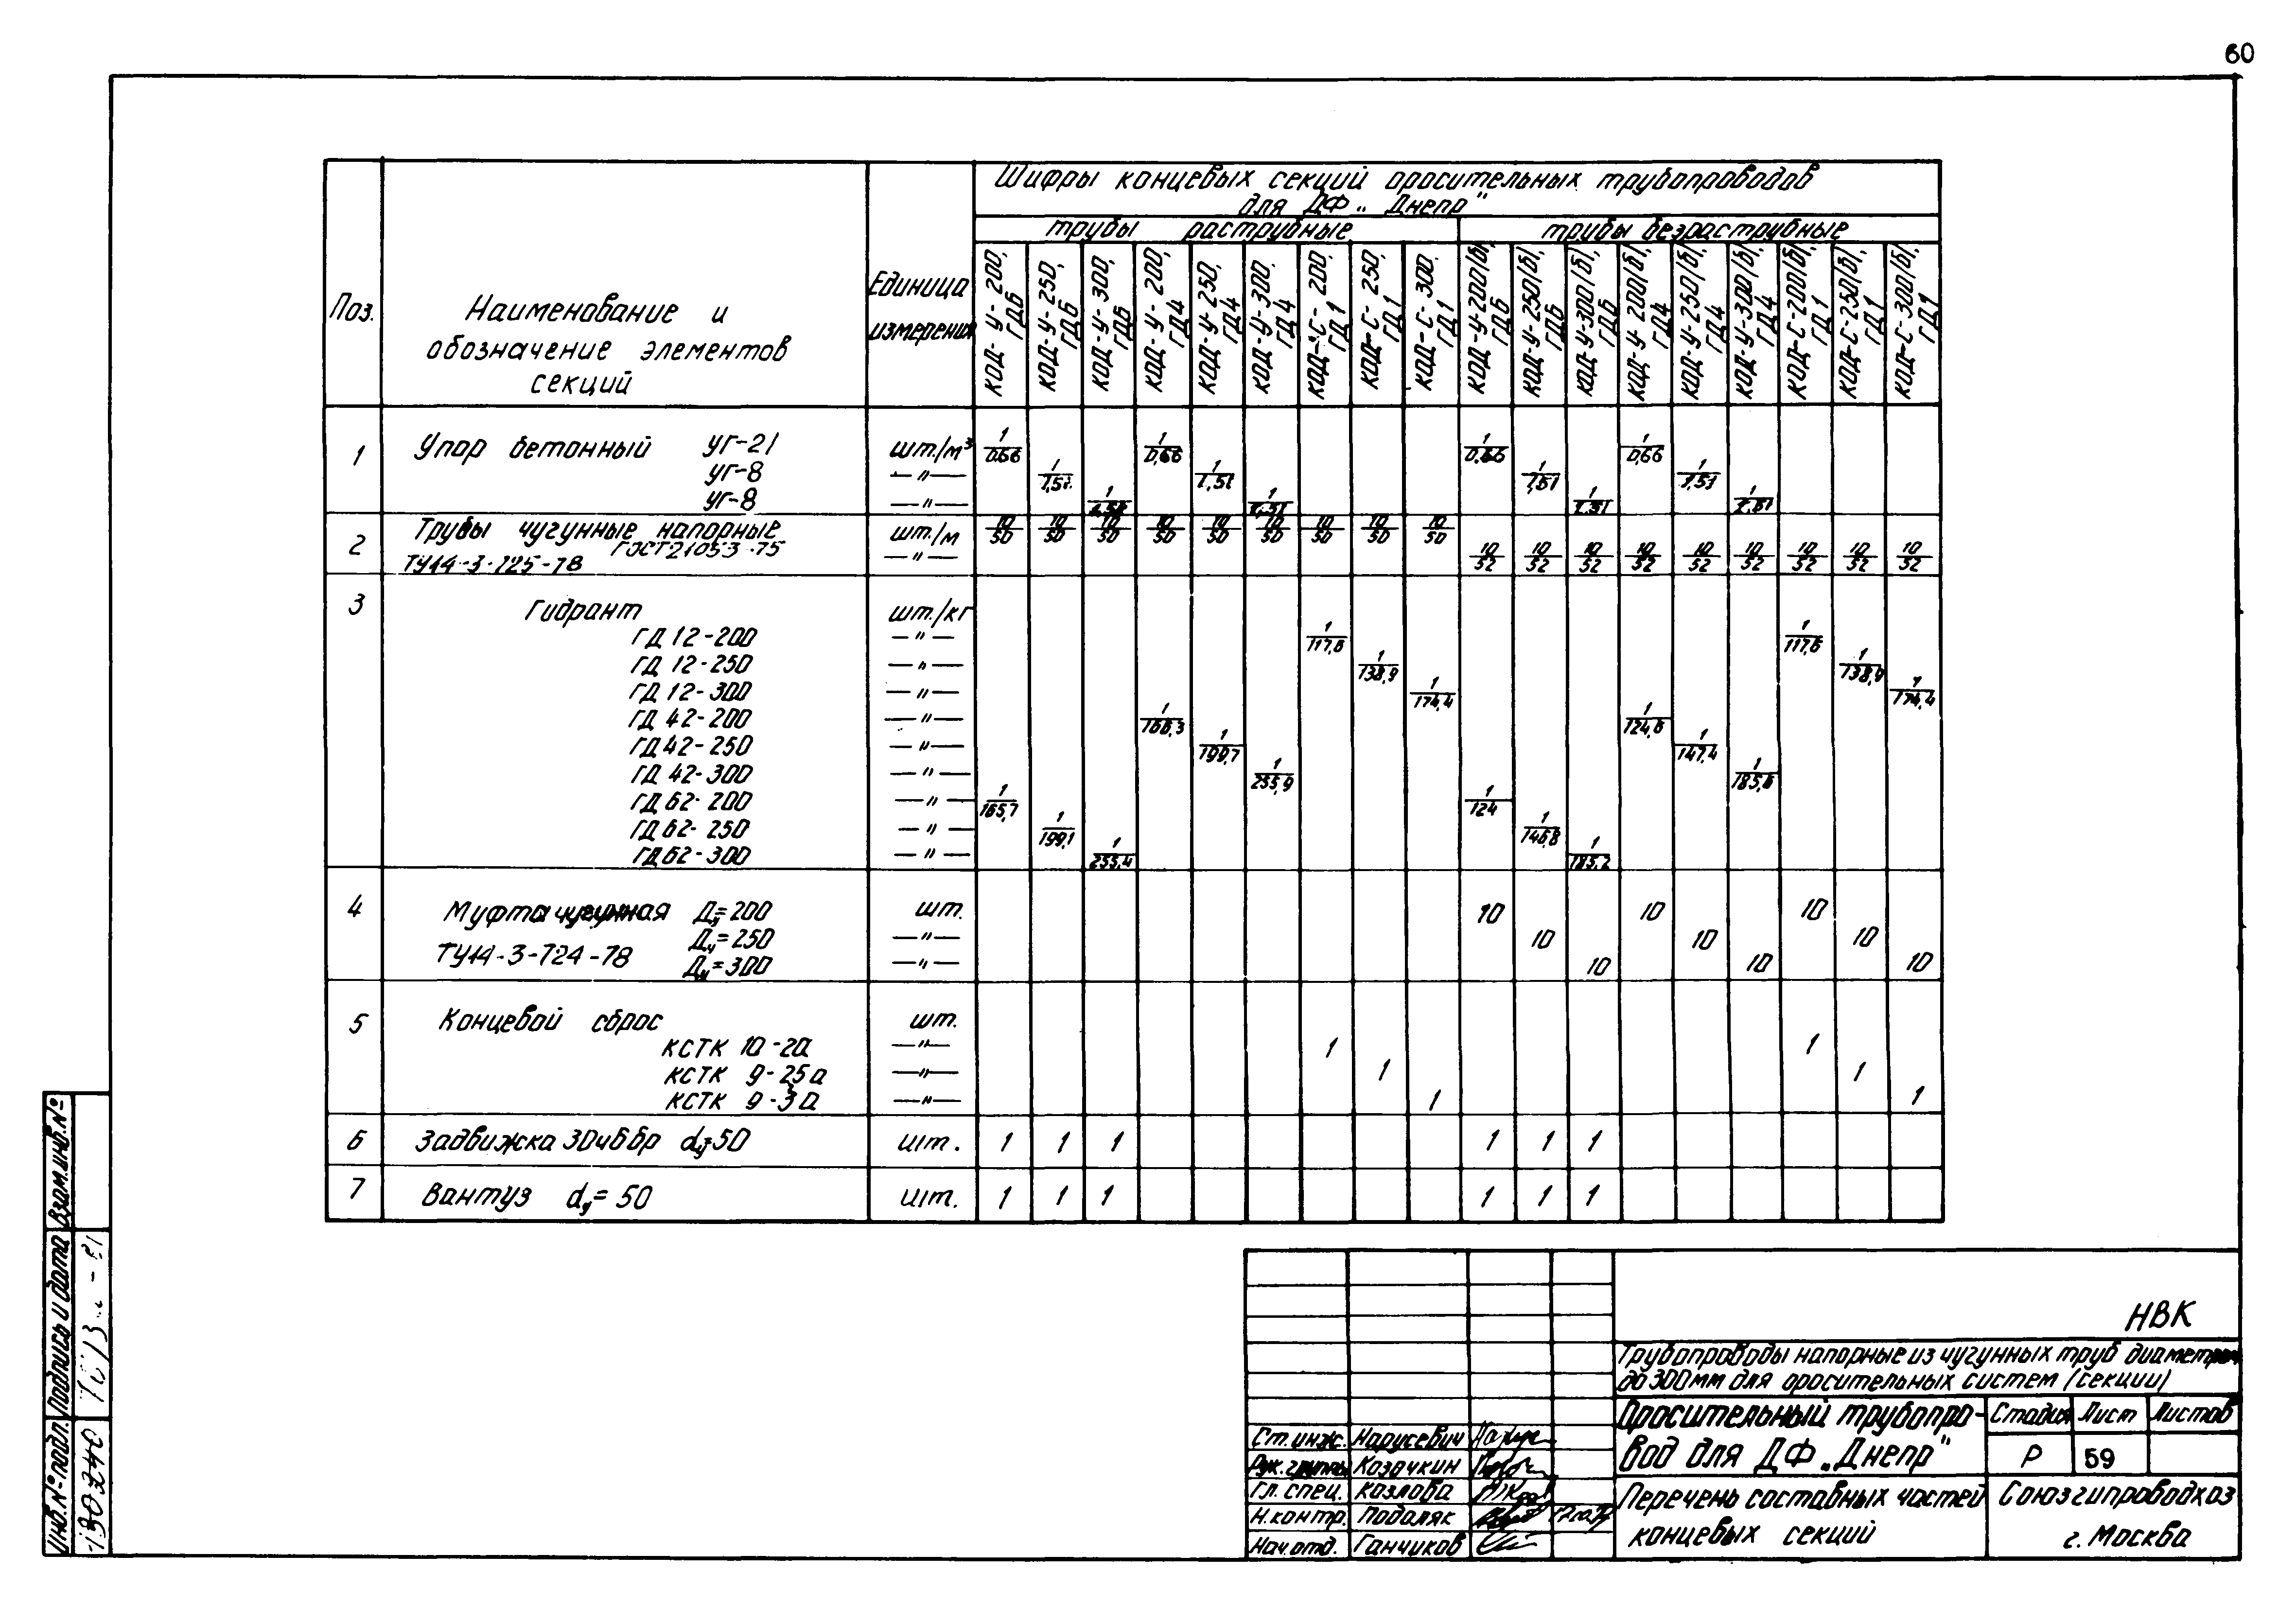 60
Шифры концевых секций оросительных трубопроводов
для ДФ „Днепр"
трубы раструбные
трубы безраструбные
Поз.
Наименование и
обозначение элементов
секций
Единица
измерения
КОД-У-200, ГД6
КОД-У-250, ГД6
КОД-У-300, ГД6
КОД-У-200, ГД4
КОД-У-250, ГД4
КОД-У-300, ГД4
КОД-С-200, ГД1
КОД-С-250, ГД1
КОД-С-300, ГД1
КОД-У-200/б/, ГД6
КОД-У-250/б/, ГД6
КОД-У-300/б/, ГД6
КОД-У-200/б/, ГД4
КОД-У-250/б/, ГД4
КОД-У-300/б/, ГД4
КОД-С-200/б/, ГД1
КОД-С-250/б/, ГД1
КОД-С-300/б/, ГД1
1 Упор бетонный УГ-21 шт./м³ 1/0,66 1/0,66 1/0,66 1/0,66
УГ-8 —"— 1/1,51 1/1,51 1/1,51 1/1,51
УГ-8 —"— 1/1,51 1/1,51 1/1,51 1/1,51
2 Трубы чугунные напорные шт./м 10/50 10/50 10/50 10/50 10/50 10/50 10/50 10/50 10/50
ГОСТ 21053-75
ТУ14-3-725-78 —"— 10/52 10/52 10/52 10/52 10/52 10/52 10/52 10/52 10/52
3 Гидрант шт./кг
ГД 12-200 —"— 1/117,6 1/117,6
ГД 12-250 —"— 1/138,9 1/138,9
ГД 12-300 —"— 1/174,4 1/174,4
ГД 42-200 —"— 1/166,3 1/124,6
ГД 42-250 —"— 1/199,7 1/147,4
ГД 42-300 —"— 1/255,9 1/185,8
ГД 62-200 —"— 1/165,7 1/124
ГД 62-250 —"— 1/199,1 1/146,8
ГД 62-300 —"— 1/255,4 1/185,2
4 Муфта чугунная Ду=200 шт. 10 10 10
Ду=250 —"— 10 10 10
ТУ14-3-724-78 Ду=300 —"— 10 10 10
5 Концевой сброс шт.
КСТК 10-2а —"— 1 1
КСТК 9-25а —"— 1 1
КСТК 9-3а —"— 1 1
6 Задвижка 30ч6бр dу=50 шт. 1 1 1 1 1 1
7 Вантуз dу=50 шт. 1 1 1 1 1 1
НВК
Трубопроводы напорные из чугунных труб диаметром
до 300 мм для оросительных систем (секции)
Оросительный трубопро-
вод для ДФ „Днепр"
Стадия Лист Листов
Р 59
Перечень составных частей
концевых секций
Союзгипроводхоз
г. Москва
Ст. инж. Нарусевич
Рук. группы Козачкин
Гл. спец. Козлова
Н. контр. Подоляк
Нач. отд. Ганчиков
Взам. инв. №
Подпись и дата
Инв. № подл.